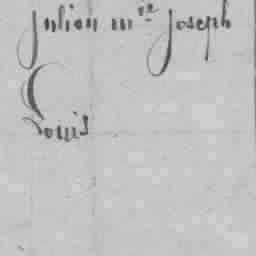 Julien m.ie Joseph
Louis